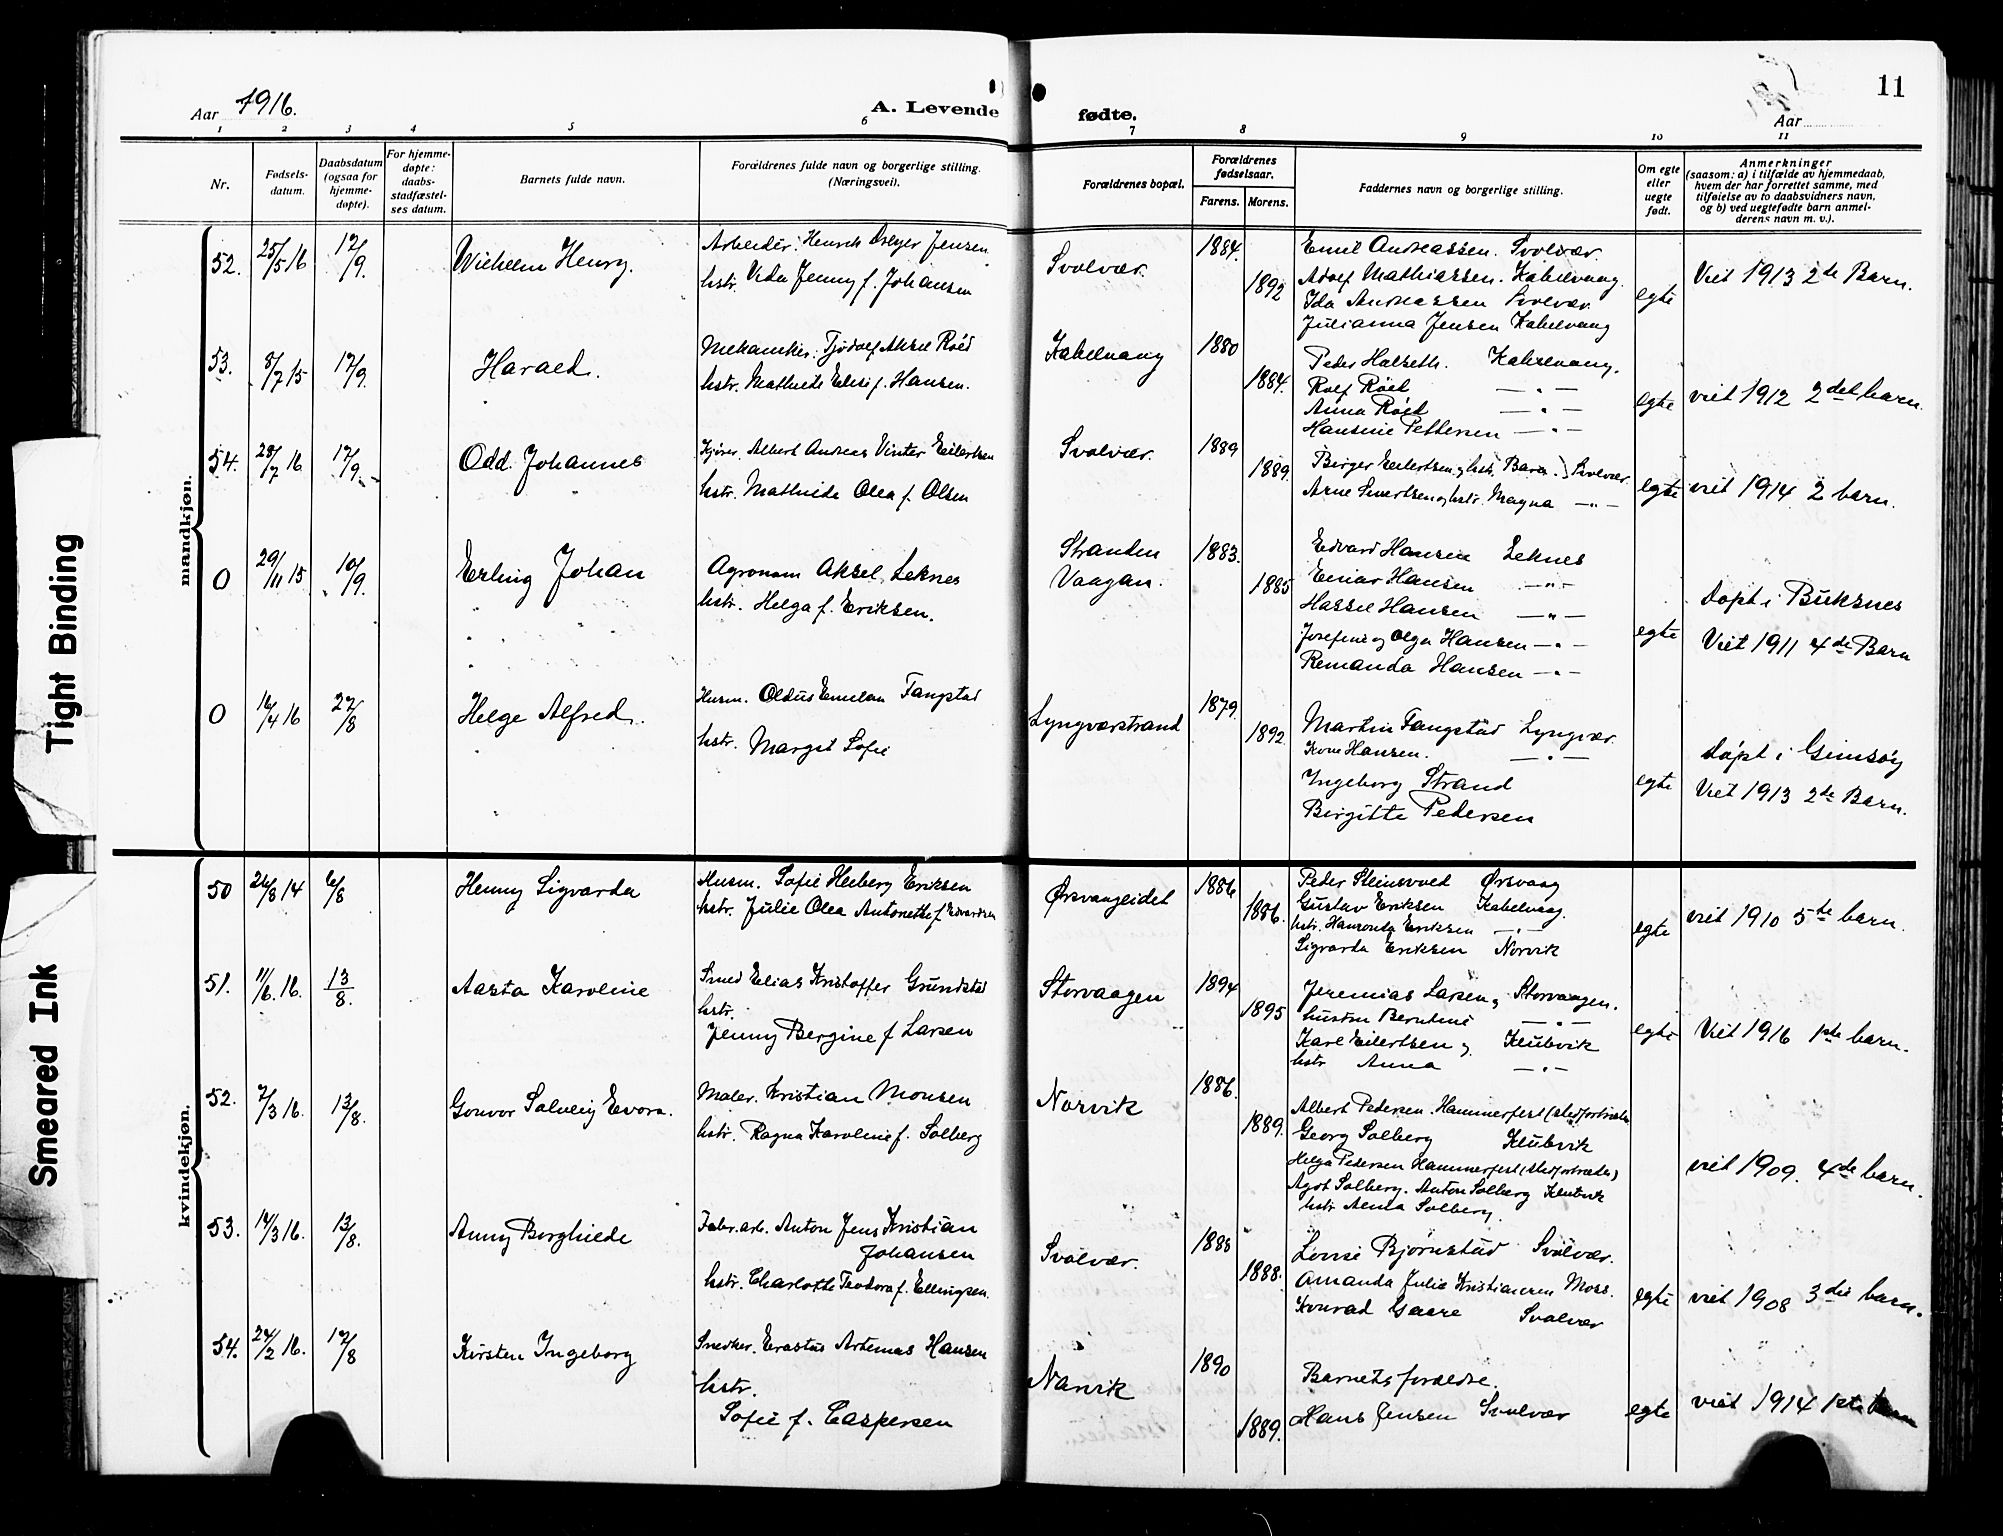 Aar 1916.
A. Levende fødte.
11
Aar
1 2 3 4 5 6 7 8 9 10 11
Nr.
Fødsels-
datum.
Daabsdatum
(ogsaa for
hjemme-
døpte).
For hjemme-
døpte:
daabs-
stadfæstel-
ses datum.
Barnets fulde navn.
Forældrenes fulde navn og borgerlige stilling.
(Næringsvei).
Forældrenes bopæl.
Forældrenes
fødselsaar.
Farens. Morens.
Faddernes navn og borgerlige stilling.
Om egte
eller
uegte
født.
Anmerkninger
(saasom: a) i tilfælde av hjemmedaab,
hvem der har forrettet samme, med
tilføielse av to daabsvidners navn,
og b) ved uegtefødte barn anmel-
derens navn m. v.).
mandkjøn.
52. 25/5 16 17/9. Wilhelm Henry.
Arbeider. Henrik Dreyer Jensen
hstr. Vida Jenny f. Johansen
Svolvær. 1884. 1892
Emil Andreassen. Svolvær.
Adolf Mathiassen. Kabelvaag.
Ida Andreassen Svolvær.
Julianna Jensen Kabelvaag
egte Viet 1913 2de Barn.
53. 8/7 15 17/9. Harald.
Mekaniker. Tjodolf Aksel Röed
hstr. Mathilde Elise f. Hansen.
Kabelvaag 1880 1884.
Peder Halseth. Kabelvaag.
Rolf Röed — " —
Anna Röed — " —
Hansine Pettersen — " —
egte viet 1912 2det barn.
54. 28/7 16 17/9. Odd. Johannes
Kjører. Albert Andreas Vinter Eilertsen
hstr. Mathilde Olea f. Olsen
Svolvær. 1889 1889.
Birger Eilertsen og hstr. Svolvær.
Arne og hstr. Magna — " —
egte viet 1914 2 barn.
0 29/11 15 10/9. Erling Johan
Agronom Aksel Leknes
hstr. Helga f. Eriksen.
Stranden
Vaagan. 1883. 1885
Edvard Hansen Leknes
Einar Hansen — " —
Hassel Hansen — " —
Josefine og Olga Hansen — " —
Remanda Hansen — " —
egte
Döpt i Buksnes
Viet 1911 4de Barn
0 16/4 16 27/8 Helge Alfred.
Husm. Oldus Emelan Fangstad
hstr. Margit Sofie
Lyngværstrand 1879. 1892
Martin Fangstad Lyngvær.
Kone Hansen. — " —
Ingeborg Strand
Birgitte Pedersen
egte
Döpt i Gimsöy
Viet 1913 2de Barn.
kvindekjøn.
50 26/8 14 6/8 Henny Sigvarda
Husm. Sofie Heiberg Eriksen
hstr. Julie Olea Antonette f. Edvardsen
Ørsvaageidet 1886 1886.
Peder Steinsvoed Ørsvaag
Gustav Eriksen Kabelvaag.
hstr. Hansonda Eriksen — " —
Sigvarda Eriksen Norvik
egte viet 1910 5te barn.
51. 11/6. 16. 13/8. Aasta Karoline
Smed Elias Kristoffer Grundstad
hstr.
Jenny Bergine f Larsen
Storvaagen 1894 1895
Jeremias Larsen og Storvaagen.
hustru Berntine — " —
Karl Eilertsen og Klubvik
hstr Anna — " —
egte Viet 1916 1ste barn.
52. 7/3 16. 13/8. Gonvor Solveig Evora.
Maler. Kristian Monsen
hstr. Ragna Karoline f. Solberg
Narvik 1886. 1889.
Albert Pedersen. Hammerfest (stedfortræder
Georg Solberg Klubvik
Helga Pedersen Hammerfest (stedfortræder)
Agot Solberg. Anton Solberg Klubvik
hstr Solberg.
viet 1909. 4de barn.
53. 14/3 16. 13/8. Anny Borghilde
Fabr.arb. Anton Jens Kristian
Johansen
hstr. Charlotte Teodora f. Ellingsen.
Svolvær. 1888 1888.
Lovise Bjørnstad Svolvær.
Amanda Julie Kristiansen Moss.
Konrad Gaare Svolvær
egte viet 1908 3die barn.
54. 24/2 16. 17/8 Kirsten Ingeborg
Snedker. Erastus Artemas Hansen
hstr.
Sofie f. Caspersen
Narvik 1890 1889.
Barnets forældre.
Hans Jensen Svolvær
egte viet 1914 1ste barn
Tight Binding
Smeared Ink